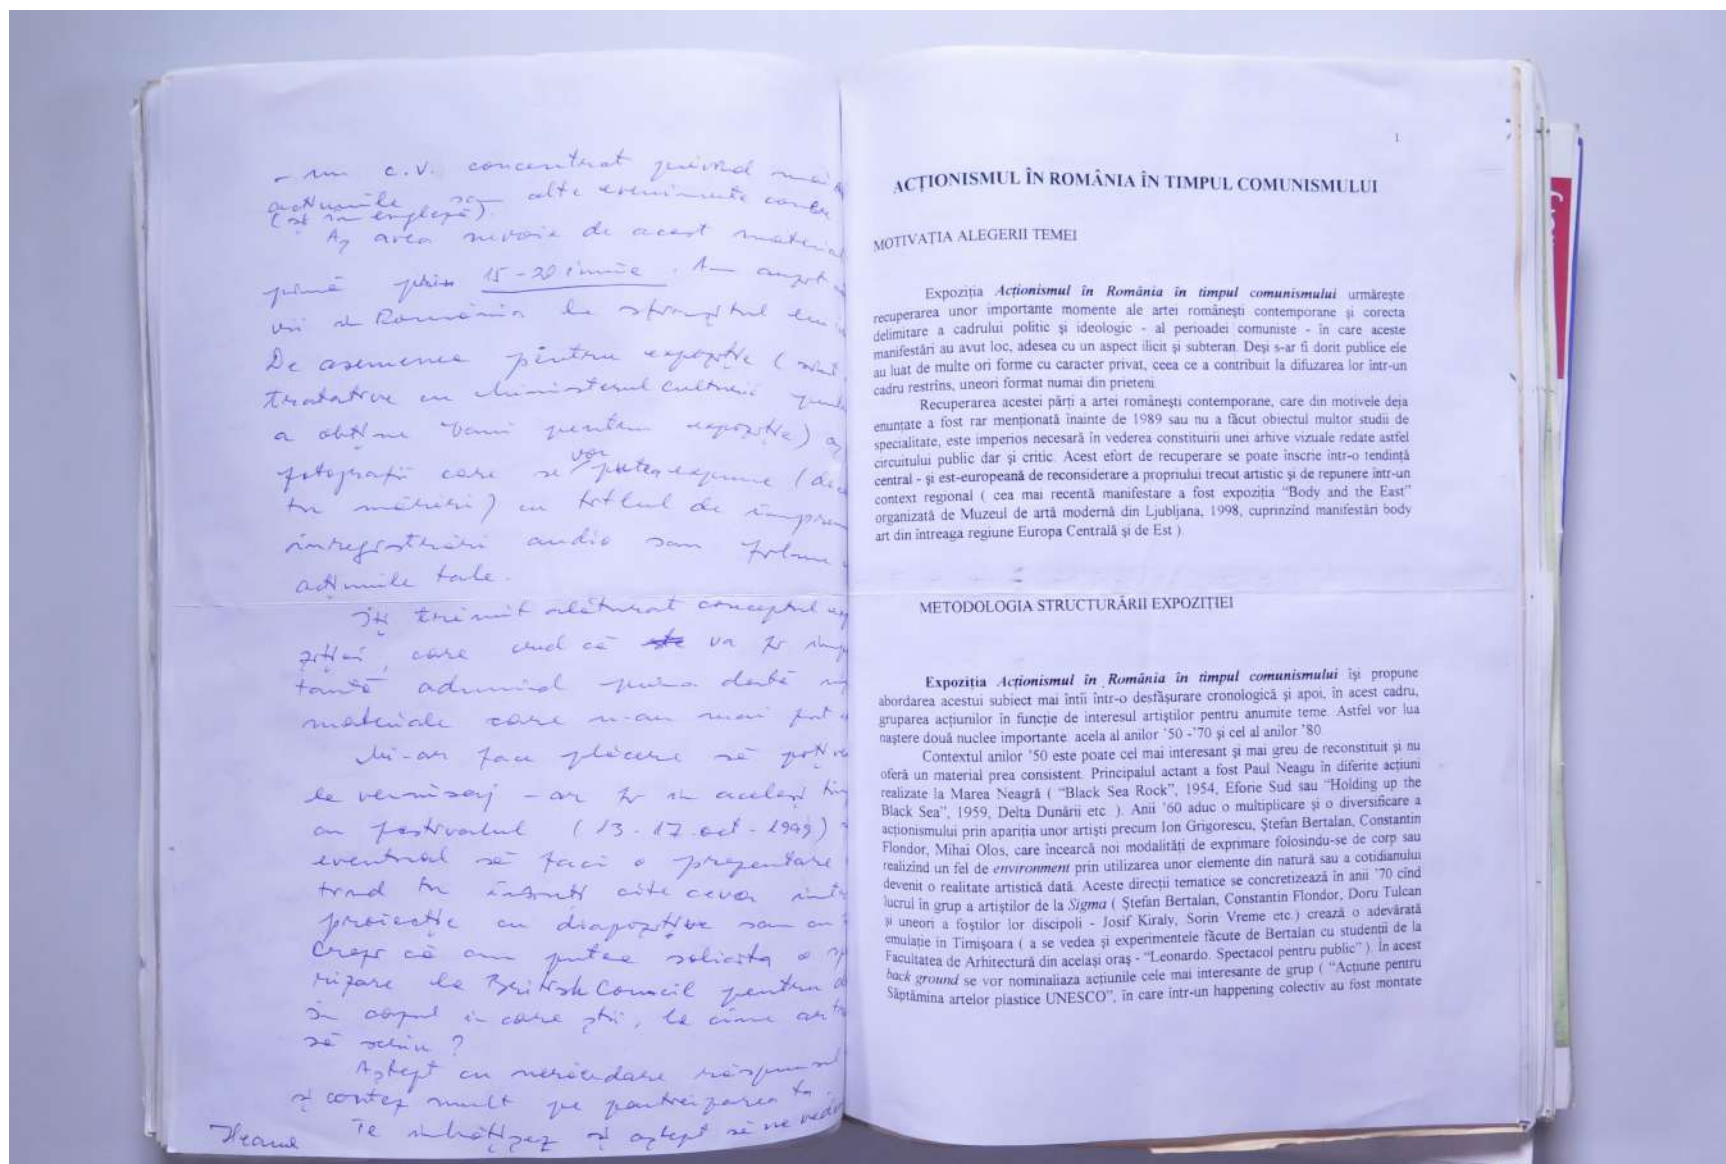 - un c.v. concentrat privind
acțiunile sau alte evenimente
(și în engleză).
Aș avea nevoie de acest material
până prin 15-20 iunie. Am
în România la sfârșitul
De asemenea pentru expoziție (sînt
tratative cu Ministerul Culturii
a obține bani pentru expoziție) aș
fotografii care se vor putea expune
cu titlul de
înregistrări audio sau filme
acțiunile tale.
Îți trimit alăturat conceptul
care cred că va fi
adunînd prima dată
materiale care n-au mai fost
Mi-ar face plăcere să poți
la vernisaj - ar fi în același
cu festivalul (13-17 oct-1999)
eventual să faci o prezentare
cîte ceva
proiecție cu diapozitive sau cu
Crezi că am putea solicita o
la British Council pentru
În cazul în care știi, la cine ar
să scriu?
Aștept cu nerăbdare răspunsul
și contez mult pe participarea ta
Te îmbrățișez și aștept să ne
Ileana
1
ACȚIONISMUL ÎN ROMÂNIA ÎN TIMPUL COMUNISMULUI
MOTIVAȚIA ALEGERII TEMEI
Expoziția Acționismul în România în timpul comunismului urmărește
recuperarea unor importante momente ale artei românești contemporane și corecta
delimitare a cadrului politic și ideologic - al perioadei comuniste - în care aceste
manifestări au avut loc, adesea cu un aspect ilicit și subteran. Deși s-ar fi dorit publice ele
au luat de multe ori forme cu caracter privat, ceea ce a contribuit la difuzarea lor într-un
cadru restrîns, uneori format numai din prieteni
Recuperarea acestei părți a artei românești contemporane, care din motivele deja
enunțate a fost rar menționată înainte de 1989 sau nu a făcut obiectul multor studii de
specialitate, este imperios necesară în vederea constituirii unei arhive vizuale redate astfel
circuitului public dar și critic. Acest efort de recuperare se poate înscrie într-o tendință
central - și est-europeană de reconsiderare a propriului trecut artistic și de repunere într-un
context regional ( cea mai recentă manifestare a fost expoziția "Body and the East"
organizată de Muzeul de artă modernă din Ljubljana, 1998, cuprinzînd manifestări body
art din întreaga regiune Europa Centrală și de Est ).
METODOLOGIA STRUCTURĂRII EXPOZIȚIEI
Expoziția Acționismul în România în timpul comunismului își propune
abordarea acestui subiect mai întîi într-o desfășurare cronologică și apoi, în acest cadru,
gruparea acțiunilor în funcție de interesul artiștilor pentru anumite teme. Astfel vor lua
naștere două nuclee importante: acela al anilor '50 -'70 și cel al anilor '80
Contextul anilor '50 este poate cel mai interesant și mai greu de reconstituit și nu
oferă un material prea consistent. Principalul actant a fost Paul Neagu în diferite acțiuni
realizate la Marea Neagră ( "Black Sea Rock", 1954, Eforie Sud sau "Holding up the
Black Sea", 1959, Delta Dunării etc. ). Anii '60 aduc o multiplicare și o diversificare a
acționismului prin apariția unor artiști precum Ion Grigorescu, Ștefan Bertalan, Constantin
Flondor, Mihai Olos, care încearcă noi modalități de exprimare folosindu-se de corp sau
realizînd un fel de environment prin utilizarea unor elemente din natură sau a cotidianului
devenit o realitate artistică dată. Aceste direcții tematice se concretizează în anii '70 cînd
lucrul în grup a artiștilor de la Sigma ( Ștefan Bertalan, Constantin Flondor, Doru Tulcan
și uneori a foștilor lor discipoli - Josif Kiraly, Sorin Vreme etc.) crează o adevărată
emulație in Timișoara ( a se vedea și experimentele făcute de Bertalan cu studenții de la
Facultatea de Arhitectură din același oraș - "Leonardo. Spectacol pentru public" ). În acest
back ground se vor nominaliaza acțiunile cele mai interesante de grup ( "Acțiune pentru
Săptămîna artelor plastice UNESCO", în care într-un happening colectiv au fost montate